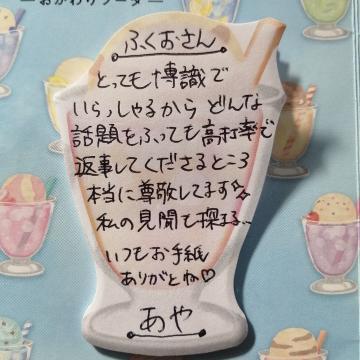 — おかわりソーダ —
ふくおさん
とっても博識で
いらっしゃるから どんな
話題をふっても高打率で
返事してくださるところ
本当に尊敬してます
私の見聞も深まる…
いつもお手紙
ありがとね♡
あや